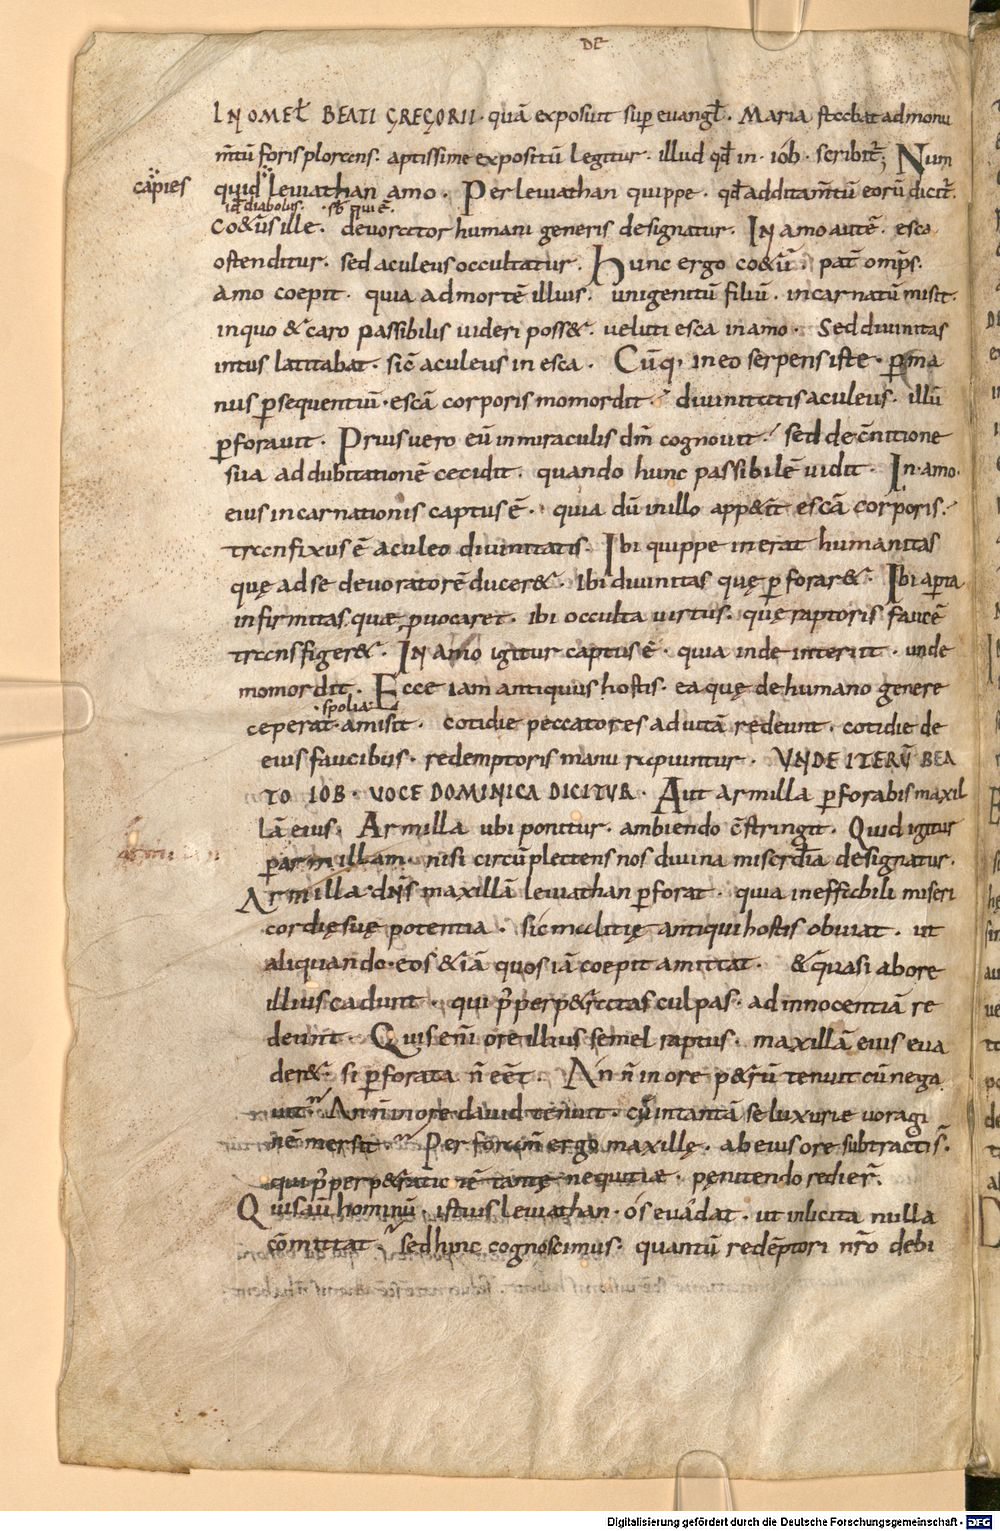 DE
IN OMEL̄ BEATI GREGORII· quā exposuit sup̄ euangl̄. Maria stabat ad monu
m̄tū foris plorans: aptissime expositū legitur. illud qd̄ in· iób· scribit̄; Num
capies
quid leuiathan amo. Per leuiathan quippe. qd̄ additam̄tū eorū dicit̄.
id̄ diabolus. ·s̄b qui ē.
co&ūs ille. deuorator humani generis designatur. IN amo autē. esca
ostenditur. sed aculeus occultatur. Hunc ergo co&ū pat̄ omp̄s.
amo coepit. quia ad mortē illius. unigenitū filiū. incarnatū misit.
in quo & caro passibilis uideri poss&. ueluti esca in amo. Sed diuinitas
intus latitabat. sic̄ aculeus in esca. Cūq· in eo serpens iste. p̄ ma
nus p̄sequentiū· escā corporis momordit. diuinitatis aculeus. illū
p̄forauit. Prius uero eū in miraculis dm̄ cognouit. sed de c̄nitione
sua ad dubitationē cecidit. quando hunc passibilē uidit. In· amo·
eius incarnationis captus ē. quia dū in illo app&it escā corporis.
transfixus ē aculeo diuinitatis. Ibi quippe inerat humanitas
quę ad se deuoratorē ducer&. ibi diuinitas quę p̄forar&. Ibi ap̄ta
infirmitas quæ p̄uocaret. ibi occulta uirtus. quę raptoris faucē
transfiger&. IN amo igitur captus ē. quia inde interiit. unde
momordit. Ecce iam antiquus hostis. ea quę de humano genere
·spolia·
ceperat· amisit. cotidie peccatores ad uitā redeunt. cotidie de
eius faucibus. redemptoris manu rapiuntur. UNDE ITERŪ BEA
TO IOB· VOCE DOMINICA DICITUR. Aut armilla p̄forabis maxil
lā eius. Armilla ubi ponitur. ambiendo c̄stringit. Quid igitur
p̄ armillam. nisi circūplectens nos diuina miserc̄dia designatur.
Armilla· dn̄s maxillā leuiathan p̄forat. quia ineffabili miseri
cordię suę potentia. sic̄ malitię antiqui hostis obuiat. ut
aliquando· eos &iā quos iā coepit amittat. & quasi ab ore
illius cadunt. qui p̄ perp&ratas culpas. ad innocentiā re
deunt. Quis eni ore illius semel raptus. maxillā eius eua
der&. si p̄forata n̄ ee͞t. An n̄ in ore p&rū tenuit cū nega
uit. An n̄ in ore dauid tenuit. cū in tantā se luxurie uoragi
nē mersit. Per foram̄ ergo maxillę. ab eius ore subtractis.
qui p̄ perp&ratione tantę nequitiæ. penitendo redier̄.
Quis aū hominū. istius leuiathan. ós euádat. ut inlicita nulla
cōmittat. sed hinc cognoscimus. quantū redēptori nr̄o debi